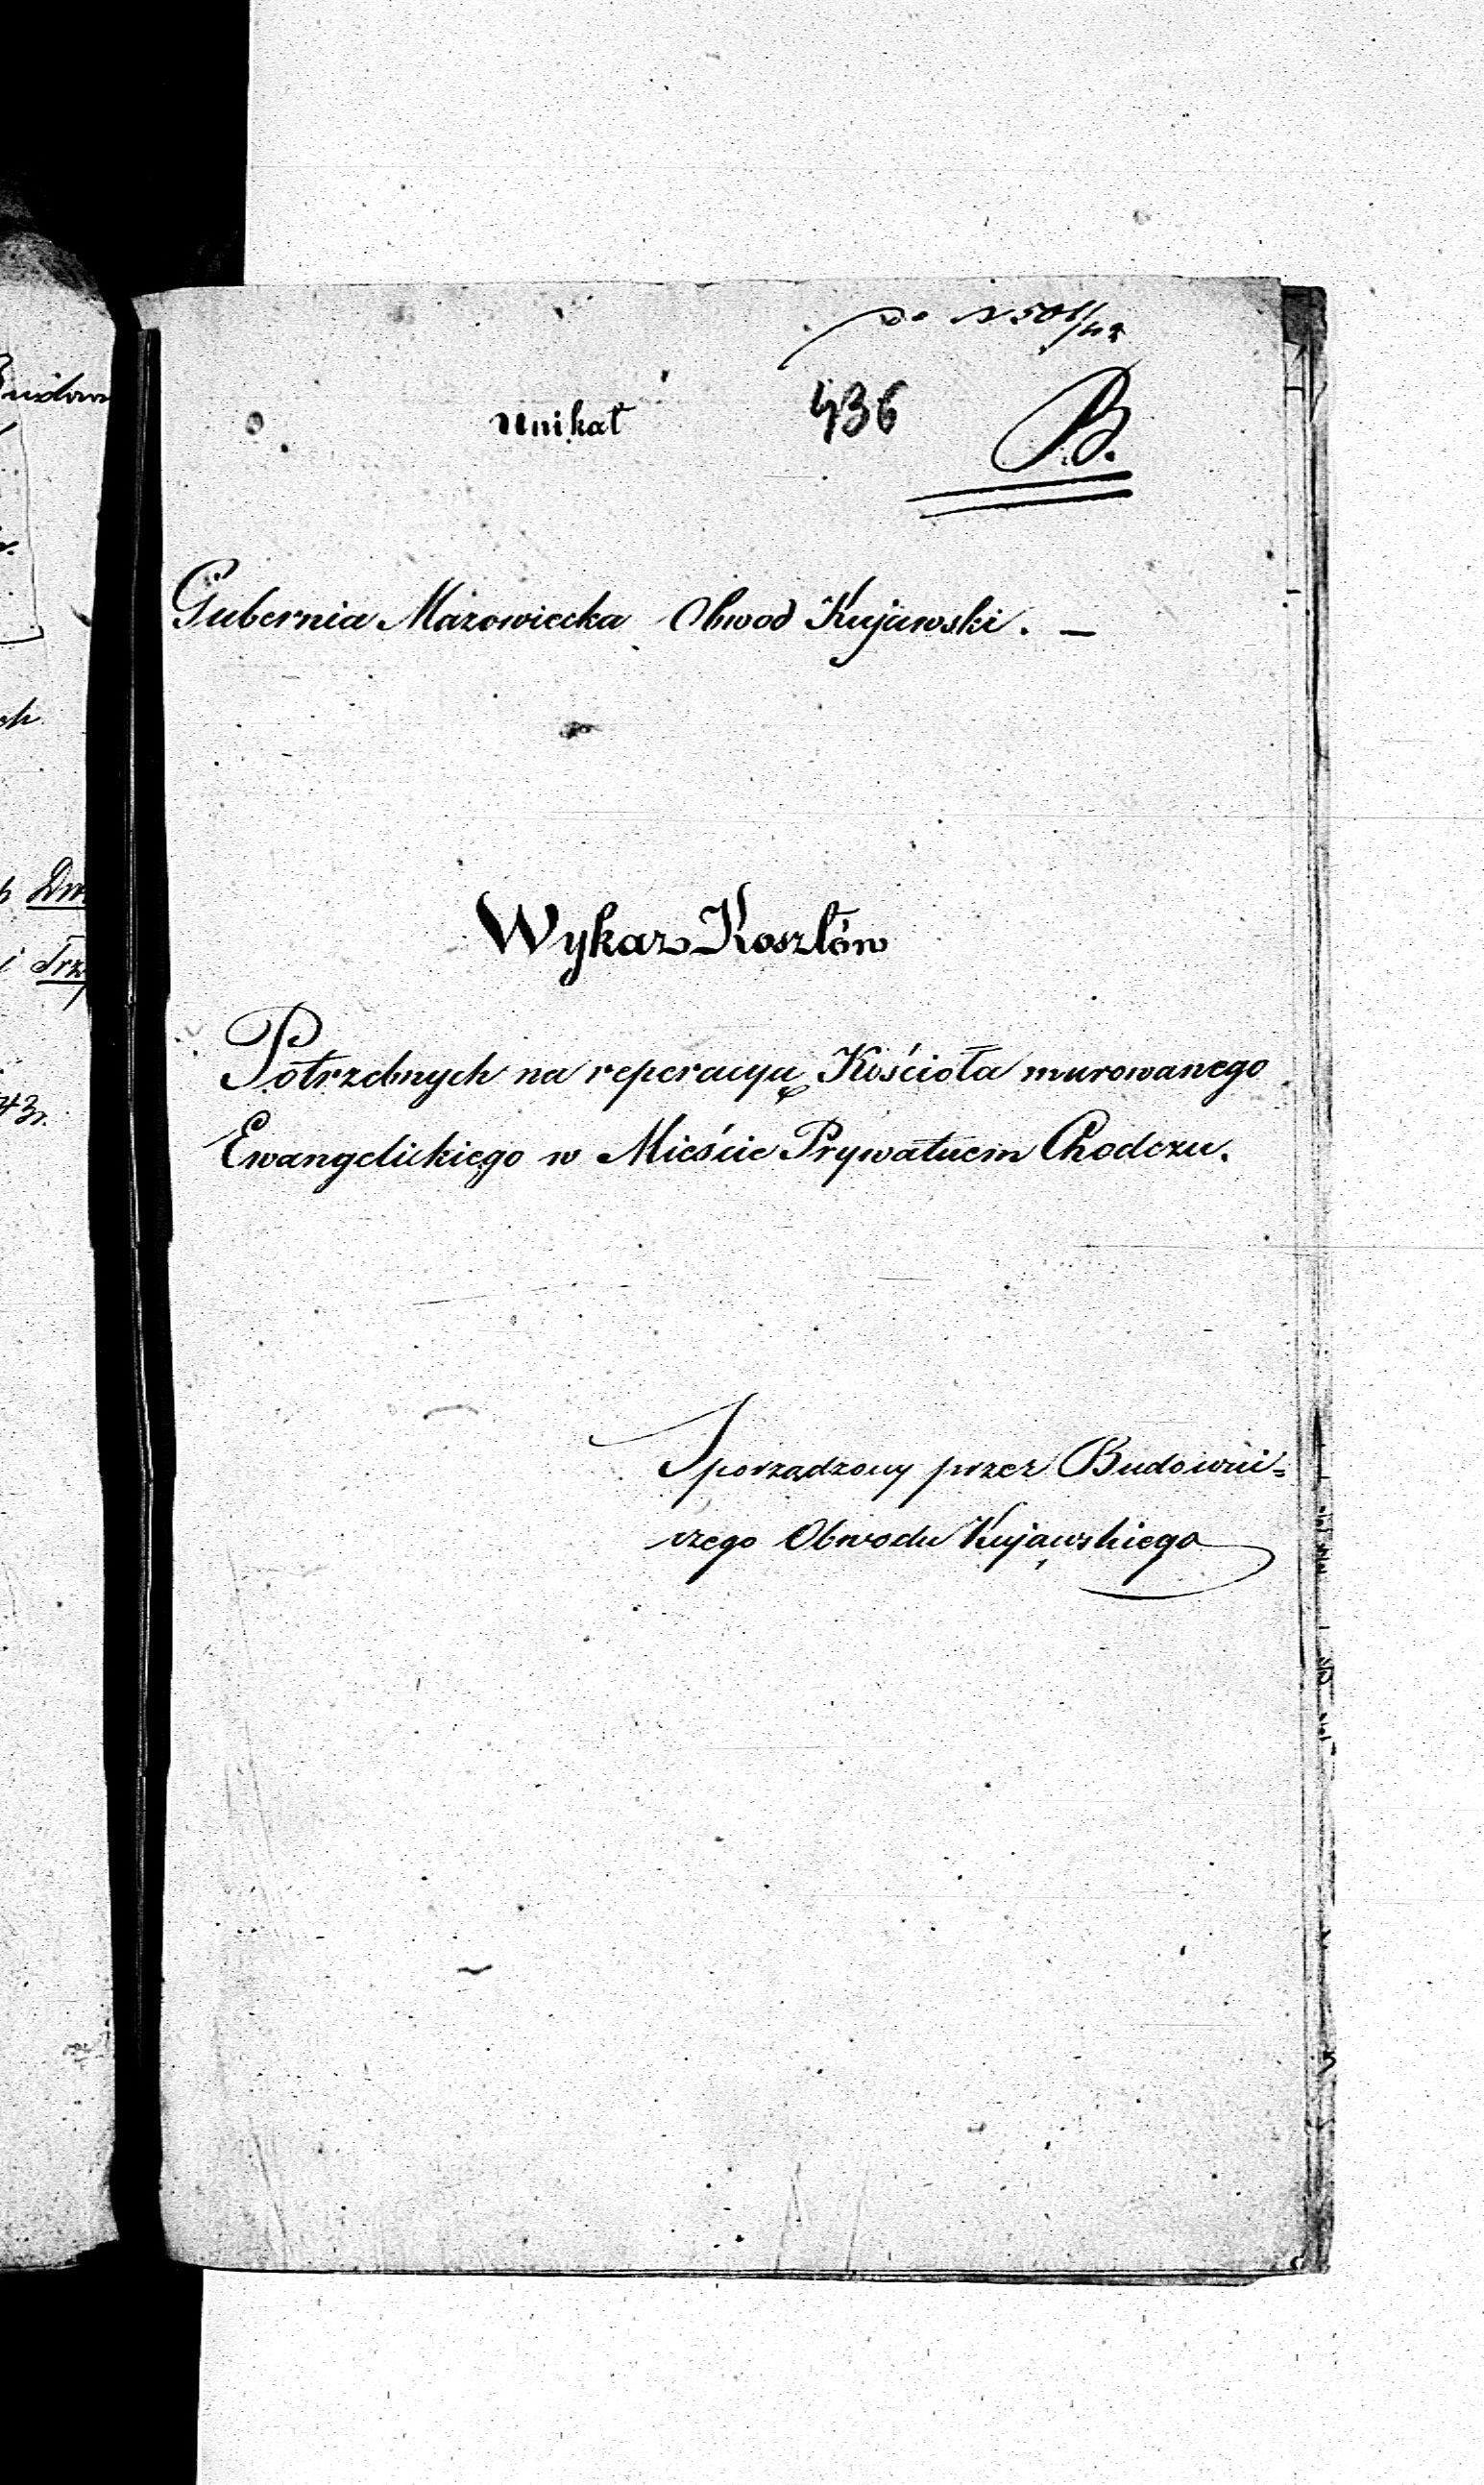 do N 501/42
Unikat 436 B.
Gubernia Mazowiecka Obwod Kujawski. —
Wykaz Kosztów
Potrzebnych na reperacyą Kościoła murowanego
Ewangelickiego w Mieście Prywatnem Chodczu.
Sporządzony przez Budowni=
czego Obwodu Kujawskiego